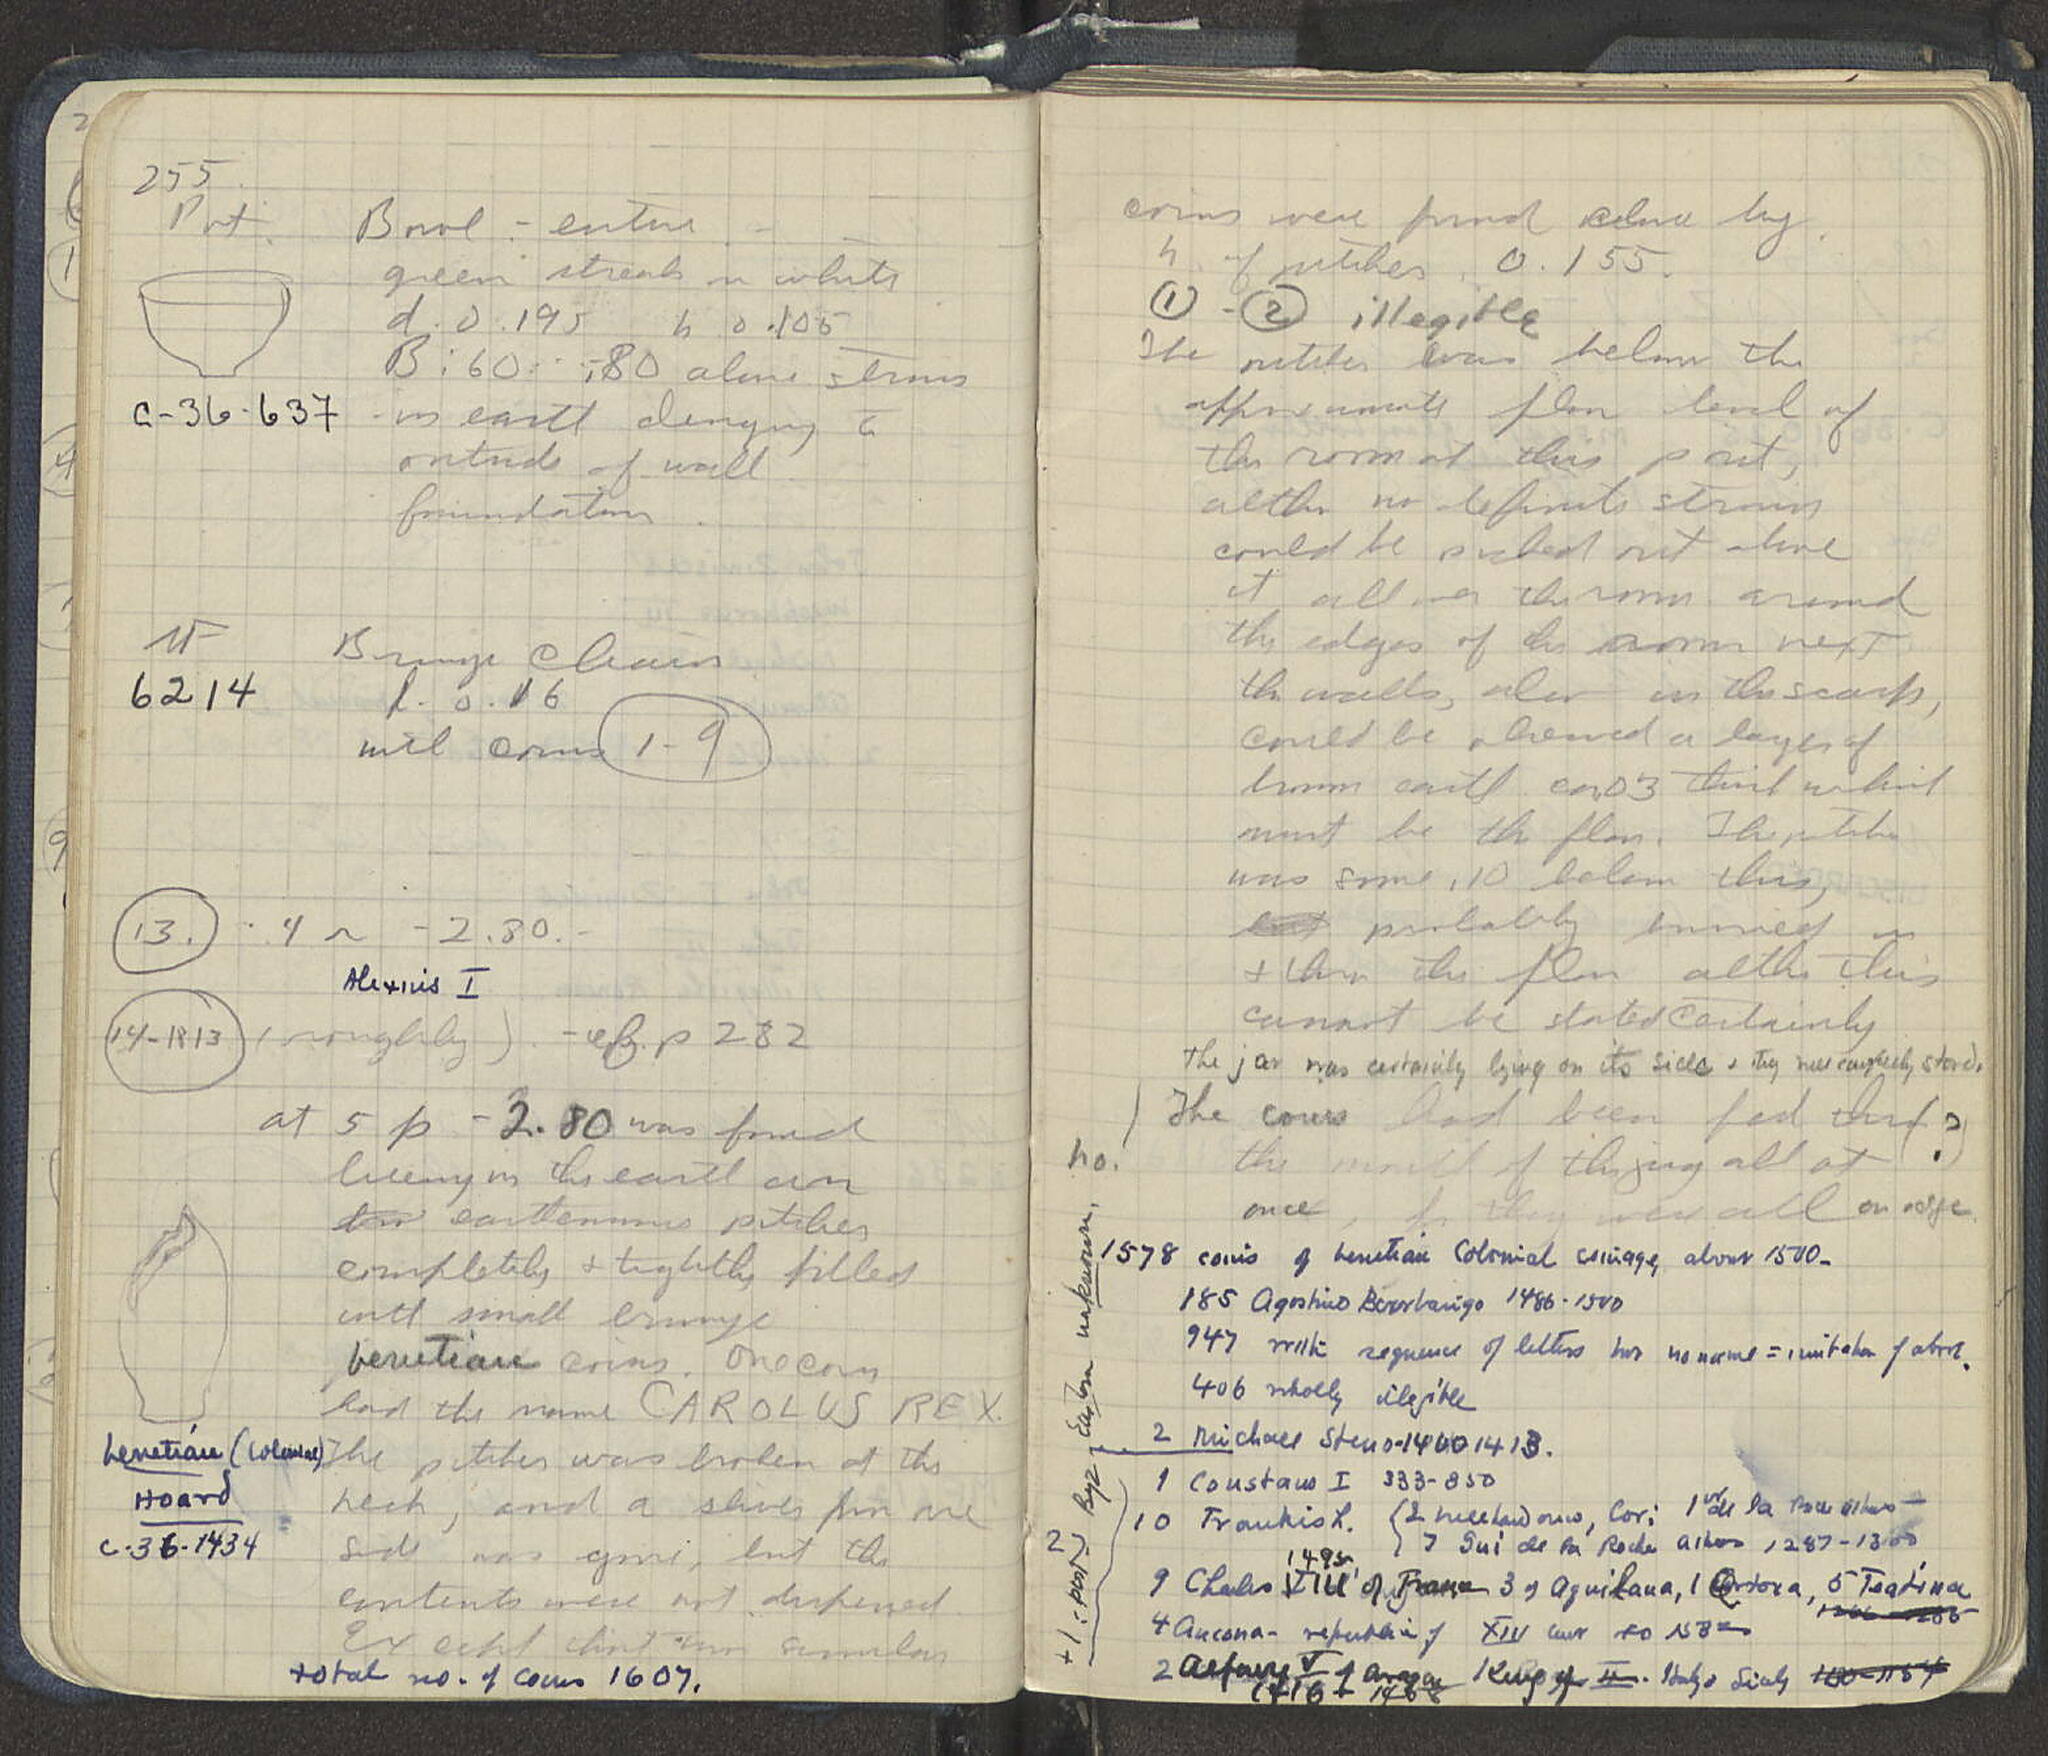 255.
Pot. Bowl - entire
green streaks on white
d. 0.195 h 0.105
B: 60 : 80 above stereo
C-36-637 in earth clinging to
outside of wall
foundation.
6214 Bronze chain
l. 0.16
with coins 1-9
13. : 4 ~ -2.80.-
Alexius I
14-1813 (roughly) - cf. p 282
at 5 p -2.80 was found
lying in the earth an
earthenware pitcher
completely & tightly filled
with small bronze
Venetian coins. One coin
had the name CAROLUS REX.
Venetian (Colonial) The pitcher was broken at the
Hoard neck, and a sliver from one
C-36-1434 side was gone, but the
contents were not dispersed
Except that two similar
total no. of coins 1607.
coins were found close by.
h. of pitcher 0.155.
1 - 2 illegible
The pitcher was below the
approximate floor level of
the room at this point,
altho no definite
could be picked out above
it all over the room around
the edges of the room next
the walls, also in the scarp,
could be observed a layer of
brown earth ca .03 thick which
must be the floor. The pitcher
was some .10 below this,
but probably buried in
& then the floor altho this
cannot be stated certainly
The jar was certainly lying on its side & they were carefully stored.
The coins had been fed thru (?)
no. the mouth of the jug all at
once, for they were all on edge.
1578 coins of Venetian Colonial coinage, about 1500-
185 Agostino Barbarigo 1486-1500
947 with sequence of letters but no name = imitation of above.
406 wholly illegible
2 Michael Steno-1400 1413.
1 Constans I 333-350
10 Frankish. 2 Cori 1 Wm de la Roche Athens -
7 Gui de la Roche Athens 1287-1300
9 Charles VIII of France 1495 3 of Aquilana, 1 Ortona, 5 Teatina
4 Ancona - republic of XIV cent to 1532
2 Alfonso V of Aragon King of II. Italy & Sicily
1416 - 1458
+1: post Byz., Eastern unknown.
2